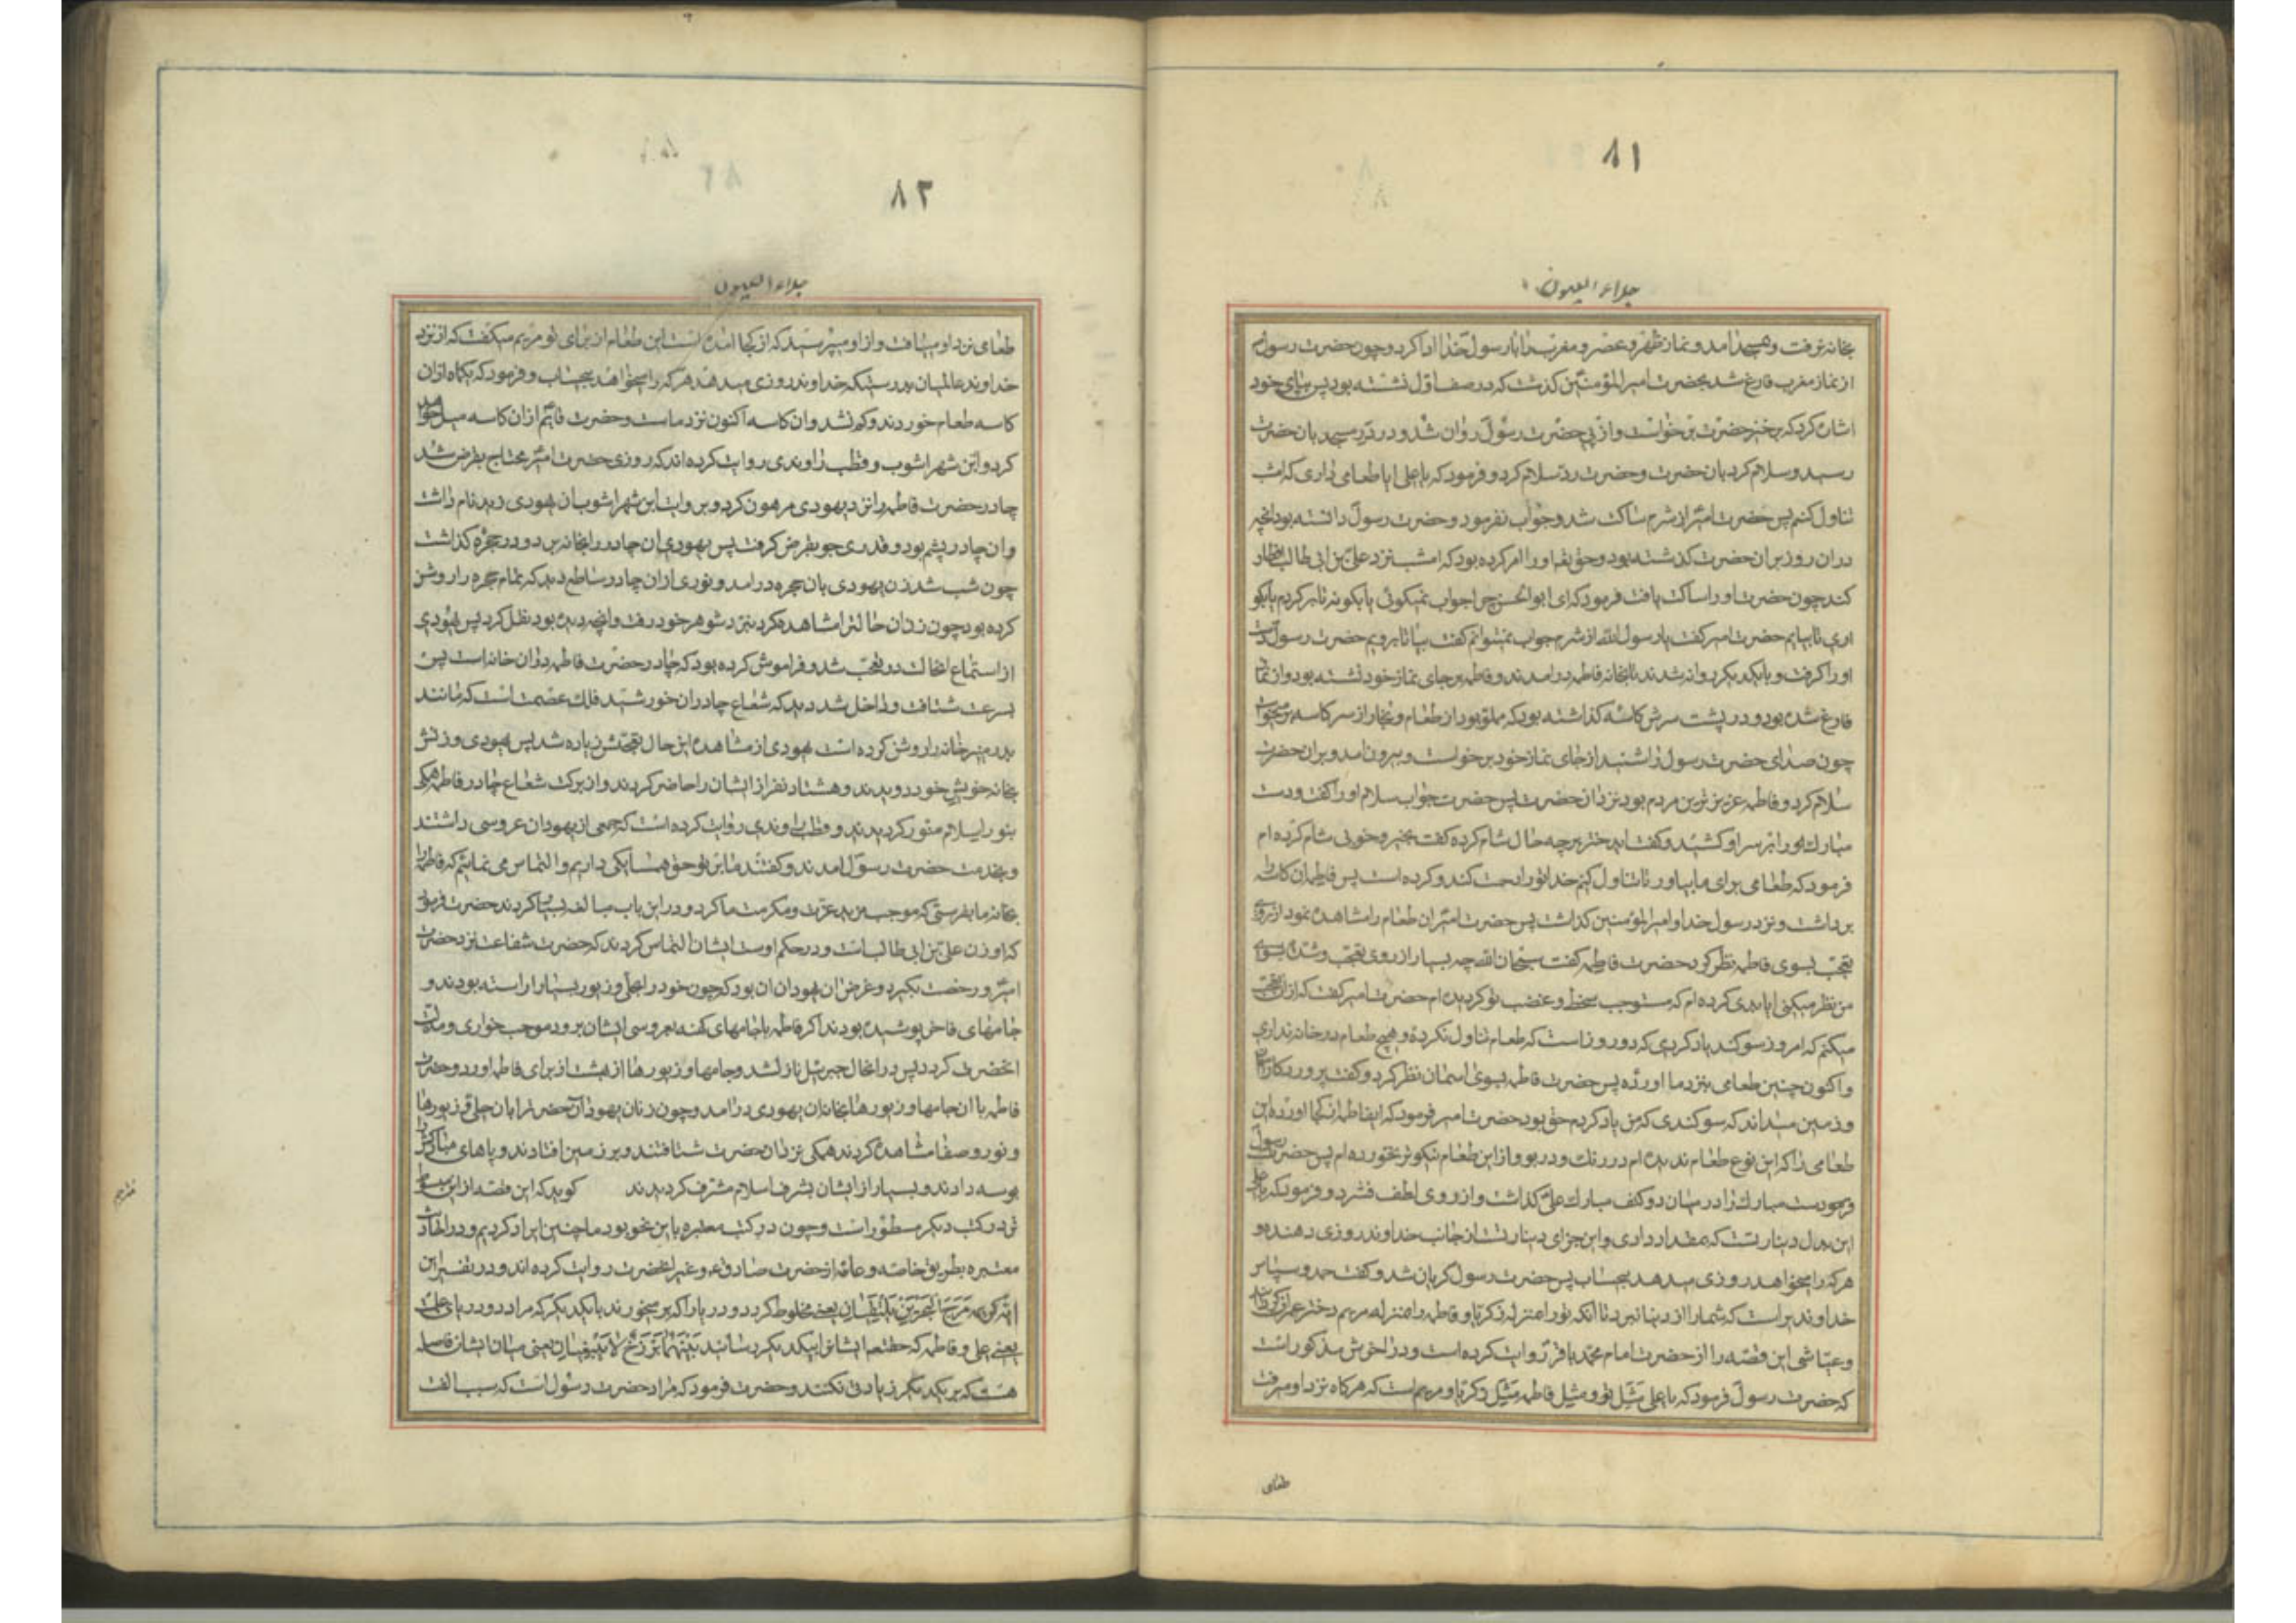 ۸۱
جلاء العیون
بخانه نرفت و بمسجد آمد و نماز ظهر و عصر و مغرب را با رسول خدا ادا کرد و چون حضرت رسول
از نماز مغرب فارغ شد بحضرت امیر المؤمنین کذشت که در صف اول نشسته بود پس بپای خود
اشاره کرد که برخیز حضرت برخواست و از پی حضرت رسول روان شد و در در مسجد بان حضرت
رسید و سلام کرد بان حضرت و حضرت رد سلام کرد و فرمود که یا علی ایا طعامی داری که امشب
تناول کنیم پس حضرت امیر از شرم ساکت شد و جواب نفرمود و حضرت رسول دانسته بود انچه
دران روز بران حضرت کذشته بود و حق تعالی او را امر کرده بود که امشب نزد علی بن ابی طالب افطار
کند چون حضرت او را ساکت یافت فرمود که ای ابوالحسن چرا جواب نمیکوئی یا بکو نه تا برکردم یا بکو
اری تا بیایم حضرت امیر کفت یا رسول الله از شرم جواب نمیتوانم کفت بیا تا برویم حضرت رسول دست
او را کرفت و با یکدیکر روانه شدند تا بخانه فاطمه درامدند و فاطمه بر جای نماز خود نشسته بود و از نماز
فارغ شده بود و در پشت سرش کاسه کذاشته بود که مملو بود از طعام و بخار از سر کاسه برمیخواست
چون صدای حضرت رسول را شنید از جای نماز خود برخواست و بیرون امد و بران حضرت
سلام کرد و فاطمه عزیزترین مردم بود نزد ان حضرت پس حضرت جواب سلام او را کفت و دست
مبارک خود را بر سر او کشید و کفت ایدختر بر چه حال شام کرده کفت بخیر و خوبی شام کرده ام
فرمود که طعامی برای ما بیاور تا تناول کنیم خدا تو را رحمت کند و کرده است پس فاطمه ان کاسه را
برداشت و نزد رسول خدا و امیر المؤمنین کذاشت پس حضرت امیر ان طعام را مشاهده نمود از روی
تعجب بسوی فاطمه نظر کرد حضرت فاطمه کفت سبحان الله چه بسیار از روی تعجب و شدت بسوی
من نظر میکنی ایا بدی کرده ام که مستوجب سخط و غضب تو کردیده ام حضرت امیر کفت که از ان تعجب
میکنم که امروز سوکند یاد کردی که دو روز است که طعام تناول نکرده و هیچ طعام در خانه نداری
و اکنون چنین طعامی بنزد ما اورده پس حضرت فاطمه بسوی اسمان نظر کرد و کفت پروردکار اسمان
و زمین میداند که سوکندی که من یاد کردم حق بود حضرت امیر فرمود که ایفاطمه از کجا اورده این
طعامی را که این نوع طعام ندیده ام در رنک و در بو و از این طعام نیکوتر نخورده ام پس حضرت رسول
دست مبارک را در میان دو کف مبارک علی کذاشت و از روی لطف فشرد و فرمود که یا علی
این بدل دینار تست که بمقداد دادی و این جزای دینار تست از جانب خداوند روزی دهنده و
هر که را میخواهد روزی میدهد بیحساب پس حضرت رسول کریان شد و کفت حمد و سپاس
خداوندیراست که شما را از دنیا نبرد تا انکه تو را بمنزله زکریا و فاطمه را بمنزله مریم دختر عمران
و عیاشی این قصه را از حضرت امام محمد باقر روایت کرده است و در اخرش مذکور است
که حضرت رسول فرمود که یا علی مثل تو و مثل فاطمه مثل زکریا و مریم است که هرکاه نزد او میرفت
طعامی
۸۲
جلاء العیون
طعامی نزد او مییافت و از او میپرسید که از کجا امده است این طعام از برای تو مریم میکفت که از نزد
خداوند عالمیان بدرستیکه خداوند روزی میدهد هر که را میخواهد بیحساب و فرمود که یکماه ازان
کاسه طعام خوردند و کم نشد و ان کاسه اکنون نزد ماست و حضرت قائم ازان کاسه میل خواهد
کرد و ابن شهراشوب و قطب راوندی روایت کرده اند که روزی حضرت امیر محتاج بقرض شد
چادر حضرت فاطمه را نزد یهودی مرهون کرد و بروایت ابن شهراشوب ان یهودی زید نام داشت
و ان چادر پشم بود و قدری جو بقرض کرفت پس یهودی ان چادر را بخانه برد و در حجره کذاشت
چون شب شد زن یهودی بان حجره درامد و نوری ازان چادر ساطع دید که تمام حجره را روشن
کرده بود چون زن ان حالت را مشاهده کرد بنزد شوهر خود رفت و انچه دیده بود نقل کرد پس یهودی
از استماع انحالت در تعجب شد و فراموش کرده بود که چادر حضرت فاطمه دران خانه است پس
بسرعت شتافت و داخل شد دید که شعاع چادر ان خورشید فلک عصمت است که مانند
بدر منیر خانه را روشن کرده است یهودی از مشاهده این حال تعجبش زیاده شد پس یهودی و زنش
بخانه خویش خود دویدند و هشتاد نفر از ایشان را حاضر کردند و از برکت شعاع چادر فاطمه همکی
بنور اسلام منور کردیدند و قطب راوندی روایت کرده است که جمعی از یهودان عروسی داشتند
و بخدمت حضرت رسول امدند و کفتند ما بر تو حق همسایکی داریم و التماس می نمائیم که فاطمه را
بخانه ما بفرستی که موجب مزید عزت و مکرمت ما کردد و در این باب مبالغه بسیار کردند حضرت فرمود
که او زن علی بن ابی طالب است و در حکم اوست ایشان التماس کردند که حضرت شفاعت نزد حضرت
امیر و رخصت بکیرد و غرض ان یهودان ان بود که چون خود را بحلی و زیور بسیار اراسته بودند و
جامهای فاخر پوشیده بودند اکر فاطمه با جامهای کهنه بعروسی ایشان برود موجب خواری و مذلت
انحضرت کردد پس در انحال جبرئیل نازل شد و جامها و زیورها از بهشت از برای فاطمه اورد و حضرت
فاطمه با ان جامها و زیورها بخانه ان یهودی درامد و چون زنان یهودان حضرت را بان حلی و زیورها
و نور و صفا مشاهده کردند همکی نزد ان حضرت شتافتند و بر زمین افتادند و پاهای مبارکش را
بوسه دادند و بسیار از ایشان بشرف اسلام مشرف کردیدند کوید که این قصه از این مبسوط
تر در کتب دیکر مسطور است و چون در کتب معتبره باین نحو بود ما چنین ایراد کردیم و در احادیث
معتبره بطریق خاصه و عامه از حضرت صادق و غیر انحضرت روایت کرده اند در تفسیر این
ایه کریمه مرج البحرین یلتقیان یعنی مخلوط کرد دو دریا را که برمیخورند با یکدیکر که مراد دو دریای علم
یعنی علی و فاطمه که حقتعالی ایشانرا بیکدیکر رسانید بینهما برزخ لا یبغیان یعنی میان ایشان فاصله
هست که بر یکدیکر زیادتی نکنند و حضرت فرمود که مراد حضرت رسول است که سبب الفت